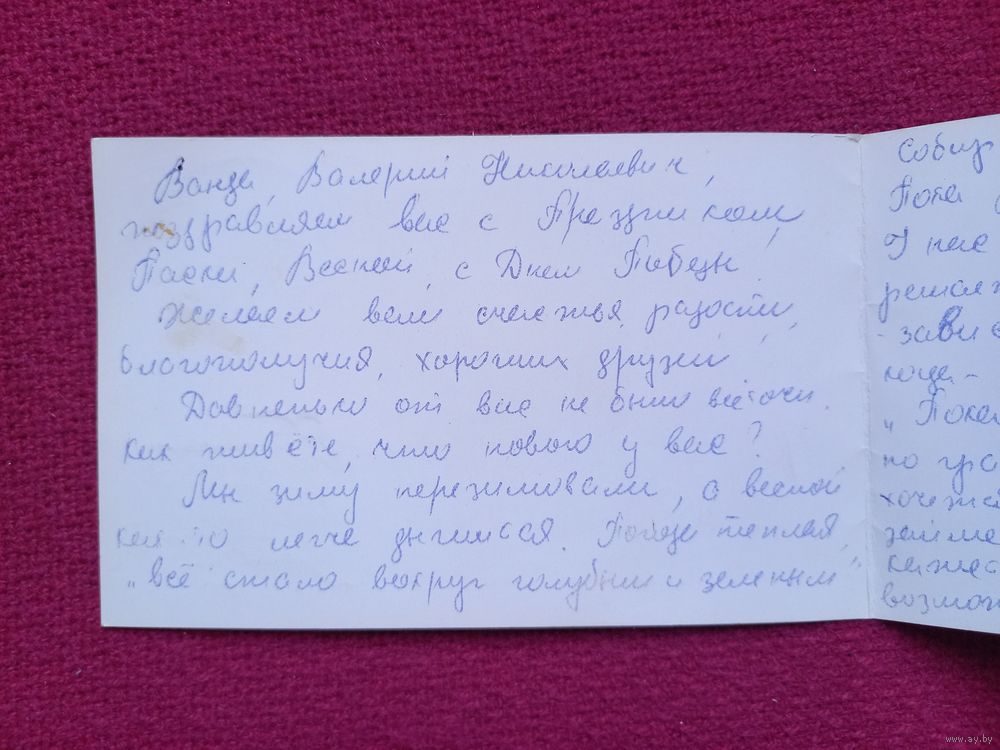 Ванда, Валерий Николаевич,
поздравляем вас с Праздником
Пасхи, Весной, с Днем Победы.
Желаем вам счастья, радости,
благополучия, хороших друзей.
Давненько от вас не было весточки.
Как живёте, что нового у вас?
Мы зиму перезимовали, а весной
как-то легче дышится. Погода теплая,
"всё стало вокруг голубым и зеленым"
Собир
Пока
У нас
решил
- зави
когда-
" Пока
по гра
хочежа
займе
возмож
www.ay.by